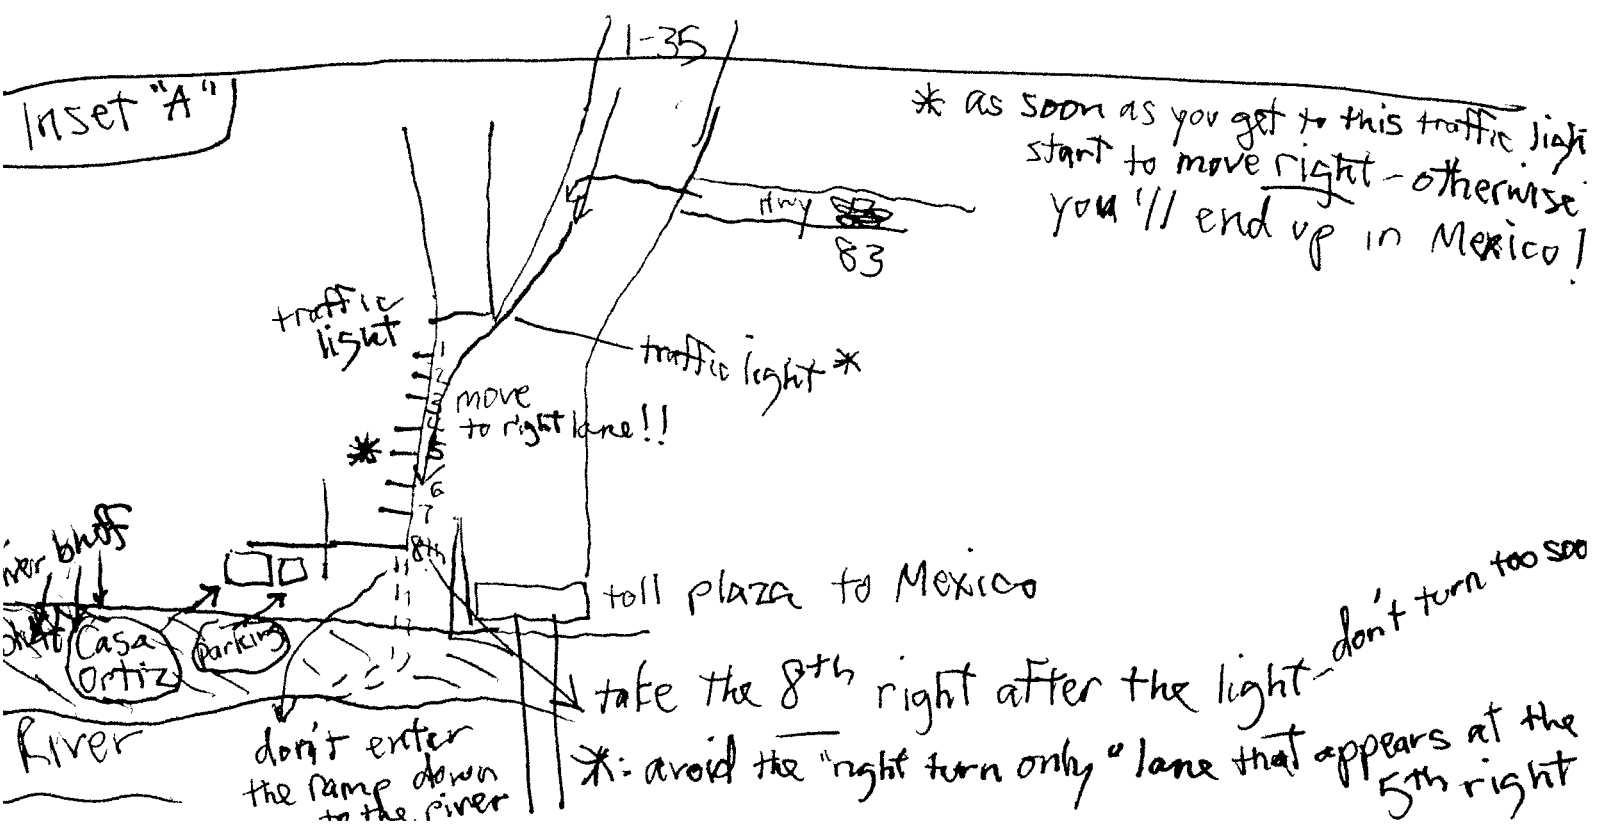 I-35
Inset "A"
* as soon as you get to this traffic
start to move right - otherwise
you'll end up in Mexico!
Hwy
83
traffic
light
traffic light *
1
2
3
4
5
6
7
8th
move
to right lane!!
*
bluff
Casa
Ortiz
Parking
toll plaza to Mexico
take the 8th right after the light - don't turn too
*: avoid the "right turn only" lane that appears at the
5th right
River
don't enter
the ramp down
to the river